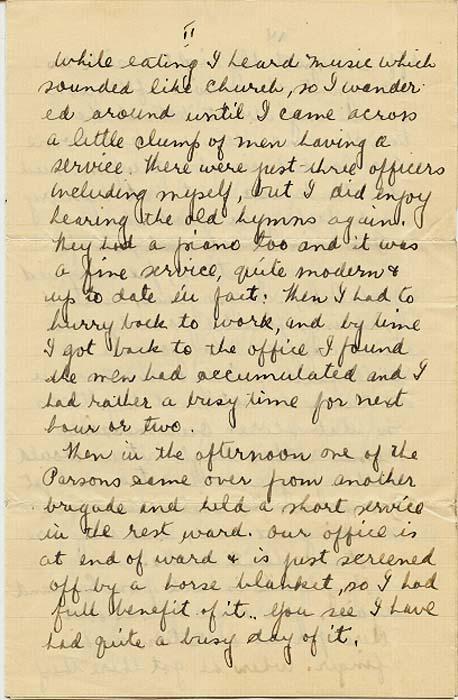 II
While eating I heard music which
sounded like church, so I wander
ed around until I came across
a little clump of men having a
service. There were just three officers
including myself, but I did enjoy
hearing the old hymns again.
They had a piano too and it was
a fine service, quite modern &
up to date in fact. Then I had to
hurry back to work, and by time
I got back to the office I found
the men had accumulated and I
had rather a busy time for next
hour or two.
Then in the afternoon one of the
Parsons came over from another
brigade and held a short service
in the rest ward. Our office is
at end of ward & is just screened
off by a horse blanket, so I had
full benefit of it.. You see I have
had quite a busy day of it.